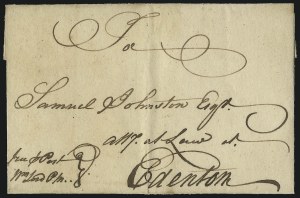 To
Samuel Johnston Esqr.
atty. at Law at
Edenton
free p Post
Wm Lord P.M.